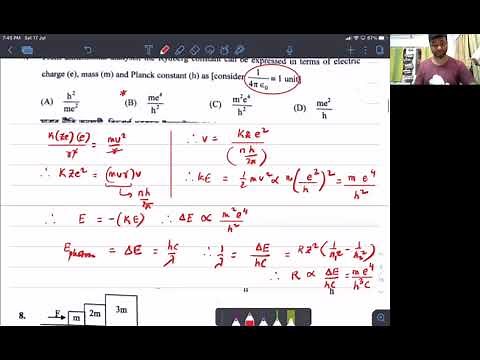 7:45 PM Sat 17 Jul
87%
From dimensional analysis, the Rydberg constant can be expressed in terms of electric
charge (e), mass (m) and Planck constant (h) as [consider 1/(4π ε₀) = 1 unit]
(A) h²/me² *(B) me⁴/h² (C) m²e⁴/h² (D) me²/h
K(Ze)(e)/r² = mv²/r ∴ v = KZe²/(nh/2π)
∴ KZe² = (mvr)v ∴ KE = 1/2 mv² ∝ m(e²/h)² = me⁴/h²
nh/2π
∴ E = -(KE) ∴ ΔE ∝ m²e⁴/h²
E photon = ΔE = hc/λ ∴ 1/λ = ΔE/hC = RZ²(1/n₁² - 1/n₂²)
∴ R ∝ ΔE/hC = me⁴/h³C
8. E m 2m 3m
h